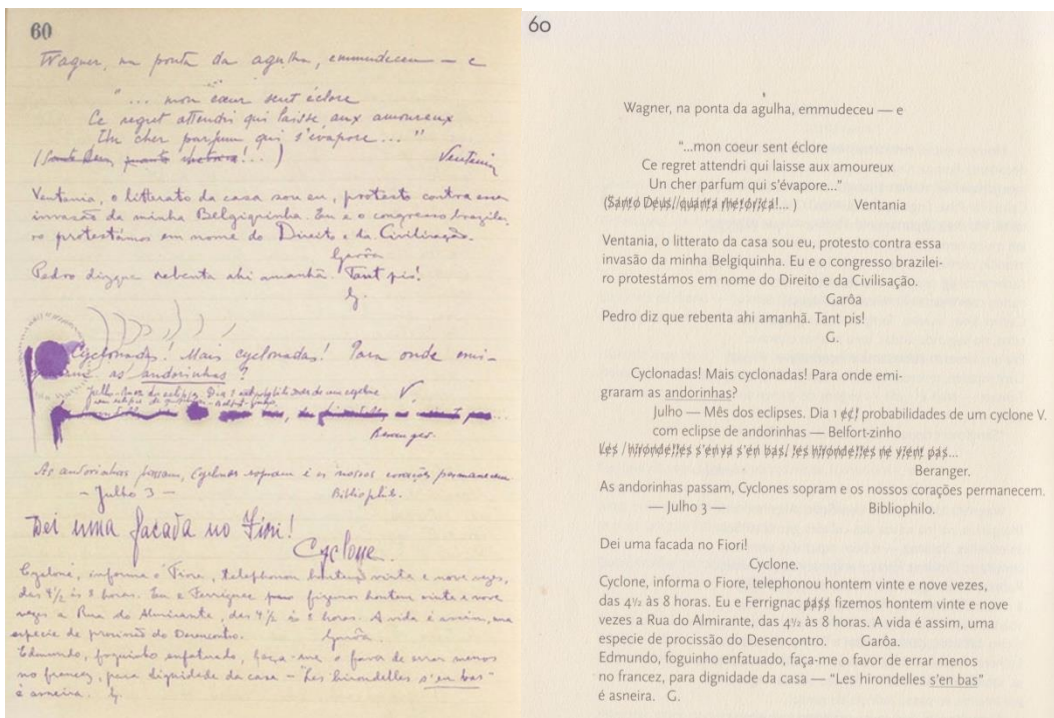 60
Wagner, na ponta da agulha, emmudeceu — e
"... mon cœur sent éclore
Ce regret attendri qui laisse aux amoureux
Un cher parfum qui s'évapore..."
(Santo Deus, quanta rhetorica!...) Ventania
Ventania, o litterato da casa sou eu, protesto contra essa
invasão da minha Belgiquinha. Eu e o congresso brazilei-
ro protestámos em nome do Direito e da Civilisação.
Garôa
Pedro diz que rebenta ahi amanhã. Tant pis!
G.
Cyclonadas! Mais cyclonadas! Para onde emi-
graram as andorinhas?
Julho — Mês dos eclipses. Dia 1 probabilidades de um cyclone V.
com eclipse de andorinhas — Belfort-zinho
Beranger.
As andorinhas passam, Cyclones sopram e os nossos corações permanecem.
— Julho 3 — Bibliophilo.
Dei uma facada no Fiori!
Cyclone.
Cyclone, informa o Fiore, telephonou hontem vinte e nove vezes,
das 4 1/2 às 8 horas. Eu e Ferrignac fizemos hontem vinte e nove
vezes a Rua do Almirante, das 4 1/2 às 8 horas. A vida é assim, uma
especie de procissão do Desencontro. Garôa.
Edmundo, foguinho enfatuado, faça-me o favor de errar menos
no francez, para dignidade da casa — "Les hirondelles s'en bas"
é asneira. G.
60
Wagner, na ponta da agulha, emmudeceu — e
"...mon coeur sent éclore
Ce regret attendri qui laisse aux amoureux
Un cher parfum qui s'évapore..."
(Santo Deus, quanta rhetórica!... ) Ventania
Ventania, o litterato da casa sou eu, protesto contra essa
invasão da minha Belgiquinha. Eu e o congresso brazilei-
ro protestámos em nome do Direito e da Civilisação.
Garôa
Pedro diz que rebenta ahi amanhã. Tant pis!
G.
Cyclonadas! Mais cyclonadas! Para onde emi-
graram as andorinhas?
Julho — Mês dos eclipses. Dia 1 probabilidades de um cyclone V.
com eclipse de andorinhas — Belfort-zinho
Les hirondelles s'en va s'en bas, les hirondelles ne vient pas...
Beranger.
As andorinhas passam, Cyclones sopram e os nossos corações permanecem.
— Julho 3 — Bibliophilo.
Dei uma facada no Fiori!
Cyclone.
Cyclone, informa o Fiore, telephonou hontem vinte e nove vezes,
das 4½ às 8 horas. Eu e Ferrignac pass fizemos hontem vinte e nove
vezes a Rua do Almirante, das 4½ às 8 horas. A vida é assim, uma
especie de procissão do Desencontro. Garôa.
Edmundo, foguinho enfatuado, faça-me o favor de errar menos
no francez, para dignidade da casa — "Les hirondelles s'en bas"
é asneira. G.